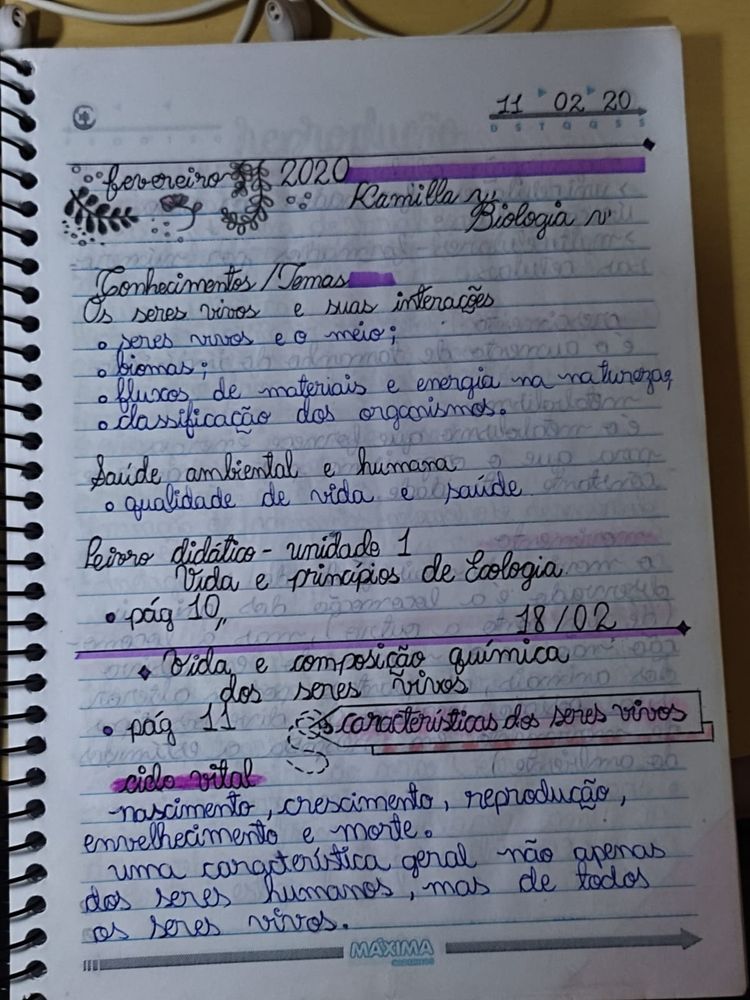 11 02 20
D S T Q Q S S
fevereiro 2020
Kamilla
Biologia
Conhecimentos/Temas
Os seres vivos e suas interações
seres vivos e o meio;
biomas;
fluxos de materiais e energia na natureza;
classificação dos organismos.
Saúde ambiental e humana
qualidade de vida e saúde
Livro didático - unidade 1
Vida e princípios de Ecologia
• pág 10,,
18/02
Vida e composição química
dos seres vivos
• pág 11
características dos seres vivos
ciclo vital
-nascimento, crescimento, reprodução,
envelhecimento e morte.
uma característica geral não apenas
dos seres humanos, mas de todos
os seres vivos.
MÁXIMA